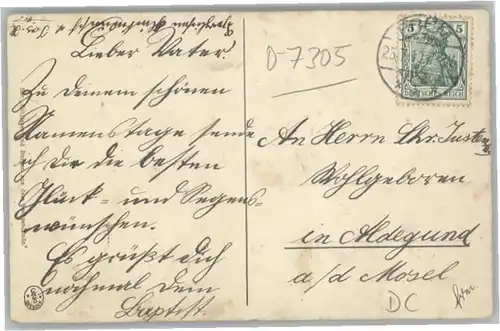 Lieber Vater.
Zu deinem schönen
Namenstage sende
ich dir die besten
Glück- und Segens-
wünschen.
Es grüßt dich
nochmal dein
Baptist.
D-7305
5 5
DEUTSCHES REICH
An Herrn Chr. Justen
Wohlgeboren
in Aldegund
a/d Mosel
DC